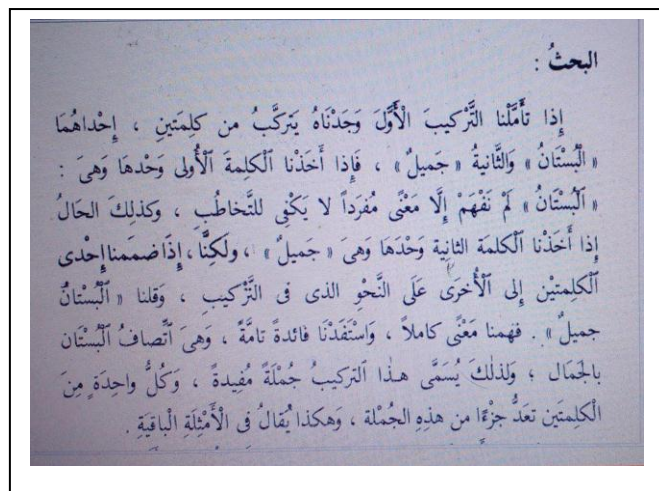 البحثُ :
إِذا تأَمَّلْنا التَّرْكيبَ الْأَوَّلَ وَجَدْنَاهُ يَتَركَّبُ من كلِمَتينِ ، إِحْداهُمَا
« الْبُسْتَانُ » والثَّانيةُ « جَميلٌ » ، فَإِذا أَخَذْنا الْكلِمةَ الْأُولى وَحْدَها وَهىَ :
« الْبُسْتَانُ » لَمْ نَفْهَمْ إِلَّا مَعْنًى مُفرَداً لا يَكْفِى للتَّخاطُبِ ، وكذلِكَ الحَالُ
إِذا أَخَذْنا الْكلمَةَ الثانِيةَ وَحْدَهَا وَهىَ « جَميلٌ » ، ولَكِنَّا ، إِذَا ضمَمنا إِحْدى
الْكلِمتيْن إِلى الْأُخرَى عَلَى النَّحْوِ الذى فى التَّرْكيبِ ، وَقلنا « الْبُسْتَانُ
جميلٌ » . فهمنا مَعْنًى كاملاً ، وَاسْتَفَدْنَا فائدةً تامَّةً ، وَهىَ اتِّصافُ الْبُسْتَان
بالجَمَال ؛ وَلذلكَ يُسَمَّى هـذا التركيبُ جُمْلَةً مُفِيدةً ، وَكُلُّ واحِدَةٍ مِنَ
الْكلِمتَين تعَدُّ جزْءًا من هذِهِ الجُمْلة ، وَهكذا يُقالُ فى الْأَمْثِلَةِ الْباقيَةِ .